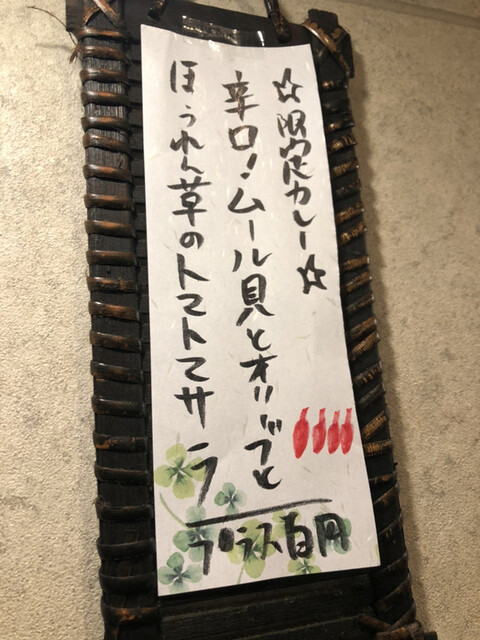 ☆限定カレー☆
辛口!ムール貝とオリーブと
ほうれん草のトマトマサラ
プラス百円